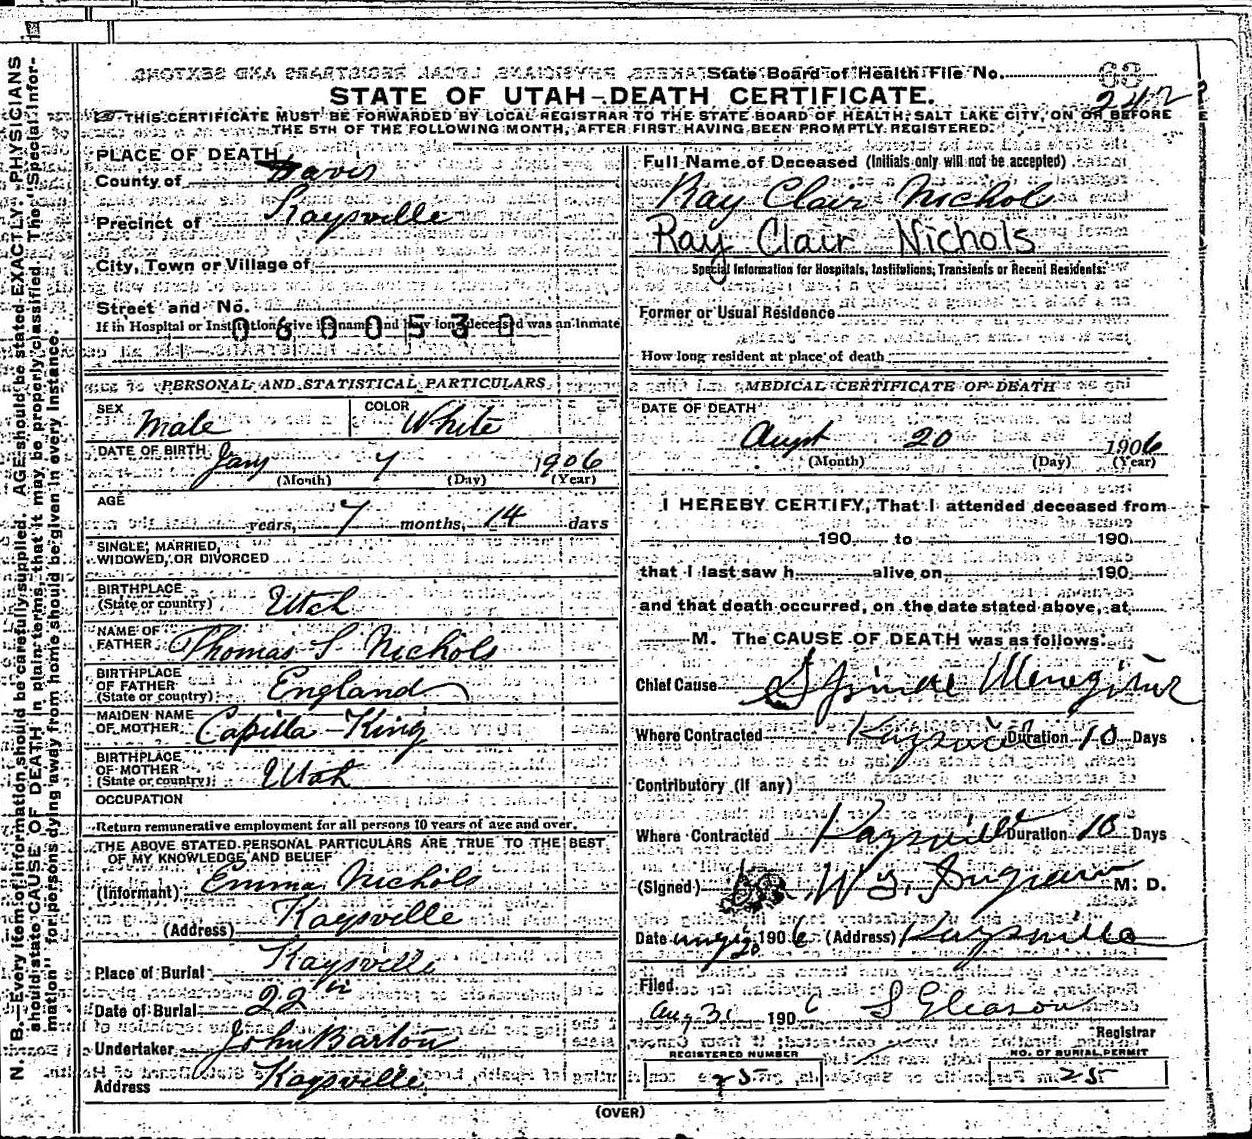 N. B.—Every item of information should be carefully supplied. AGE should be stated EXACTLY. PHYSICIANS
should state CAUSE OF DEATH in plain terms, that it may be properly classified. The "Special Infor-
mation" for persons dying away from home should be given in every instance.
State Board of Health File No. 63
242
STATE OF UTAH—DEATH CERTIFICATE.
THIS CERTIFICATE MUST BE FORWARDED BY LOCAL REGISTRAR TO THE STATE BOARD OF HEALTH, SALT LAKE CITY, ON OR BEFORE
THE 5TH OF THE FOLLOWING MONTH, AFTER FIRST HAVING BEEN PROMPTLY REGISTERED.
PLACE OF DEATH
County of Davis
Precinct of Kaysville
City, Town or Village of
Street and No.
If in Hospital or Institution, give its name and how long deceased was an inmate
0600530
PERSONAL AND STATISTICAL PARTICULARS
SEX Male COLOR White
DATE OF BIRTH Jany 7 1906
(Month) (Day) (Year)
AGE
years, 7 months, 14 days
SINGLE, MARRIED,
WIDOWED, OR DIVORCED
BIRTHPLACE
(State or country) Utah
NAME OF
FATHER Thomas S Nichols
BIRTHPLACE
OF FATHER
(State or country) England
MAIDEN NAME
OF MOTHER Capilla King
BIRTHPLACE
OF MOTHER
(State or country) Utah
OCCUPATION
Return remunerative employment for all persons 10 years of age and over.
THE ABOVE STATED PERSONAL PARTICULARS ARE TRUE TO THE BEST
OF MY KNOWLEDGE AND BELIEF
(Informant) Emma Nichols
(Address) Kaysville
Place of Burial Kaysville
Date of Burial 22
Undertaker John Barton
Address Kaysville
Full Name of Deceased (Initials only will not be accepted)
Ray Clair Nichols
Ray Clair Nichols
Special Information for Hospitals, Institutions, Transients or Recent Residents:
Former or Usual Residence
How long resident at place of death
MEDICAL CERTIFICATE OF DEATH
DATE OF DEATH
Augst 20 1906
(Month) (Day) (Year)
I HEREBY CERTIFY, That I attended deceased from
190 to 190
that I last saw h alive on 190
and that death occurred, on the date stated above, at
M. The CAUSE OF DEATH was as follows:
Chief Cause Spinal
Where Contracted Kaysville Duration 10 Days
Contributory (if any)
Where Contracted Kaysville Duration 10 Days
(Signed) Ingram M. D.
Date 20 1906 (Address) Kaysville
Filed
Aug 31 1906 S Gleason
Registrar
REGISTERED NUMBER
25
NO. OF BURIAL PERMIT
25
(OVER)